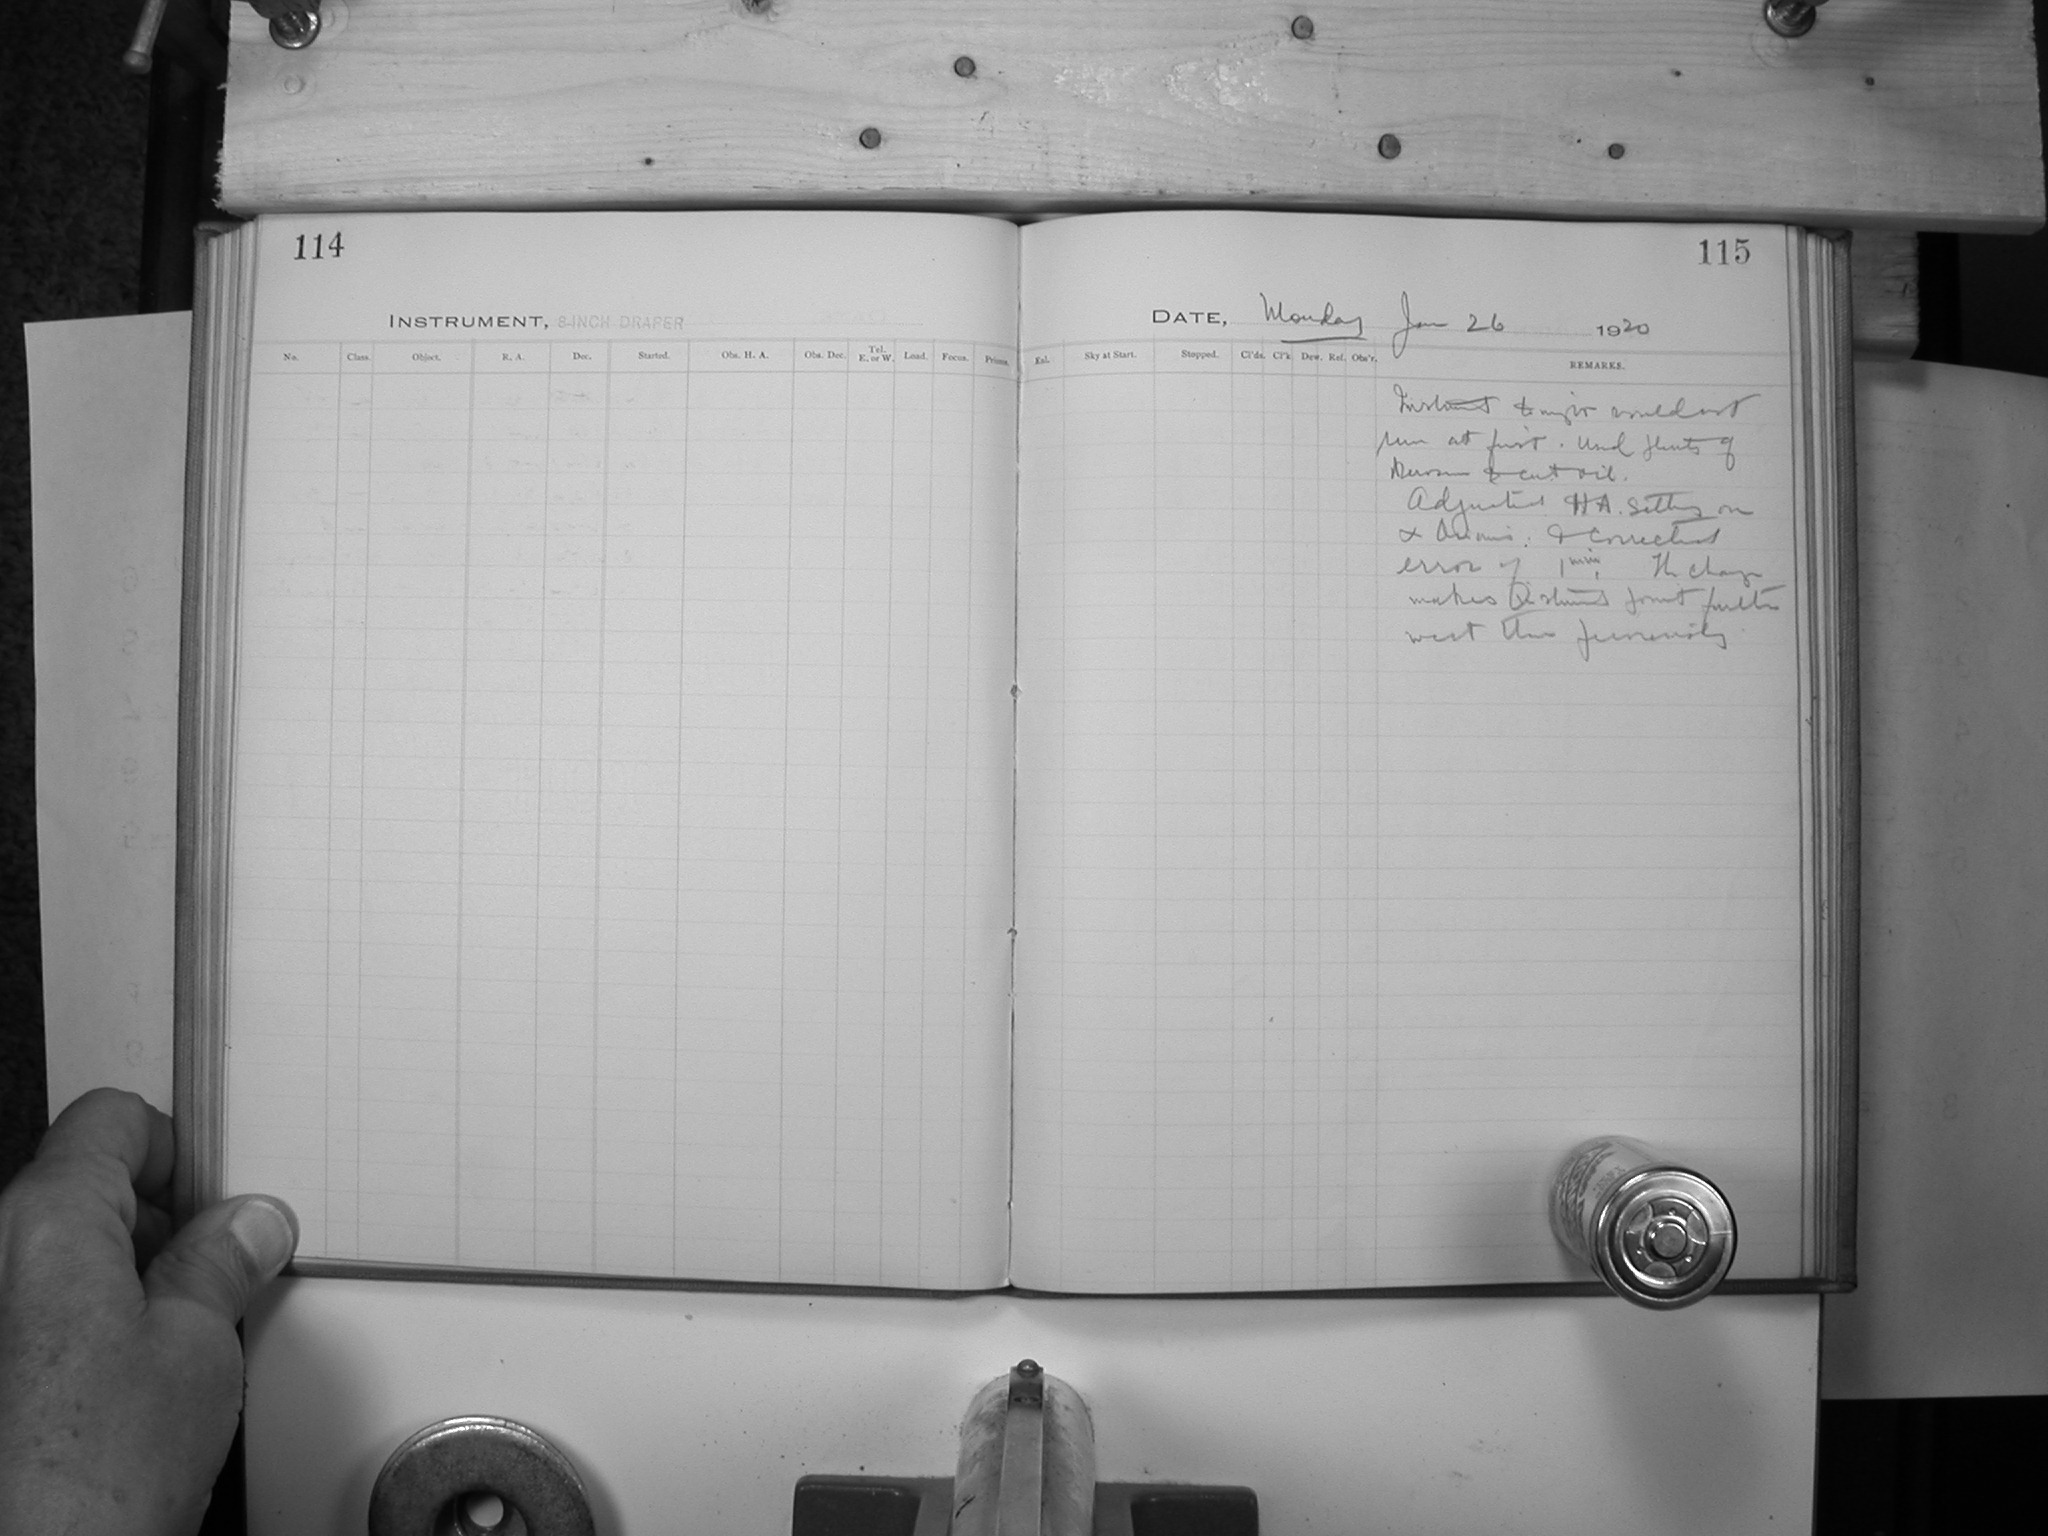 114
INSTRUMENT, 8-INCH DRAPER
No. Class. Object. R. A. Dec. Started. Obs. H. A. Obs. Dec. Tel. E. or W. Load. Focus. Prisms.
115
DATE, Monday Jan 26 1920
Exl. Sky at Start. Stopped. Cl'ds. Cl'k Dew. Ref. Obs'r. REMARKS.
tonight would not
run at first. Used plenty of
Kerosene & cut oil.
Adjusted HA. setting on
α Orionis. & corrected
error of 1 min. The change
makes point further
west than previously